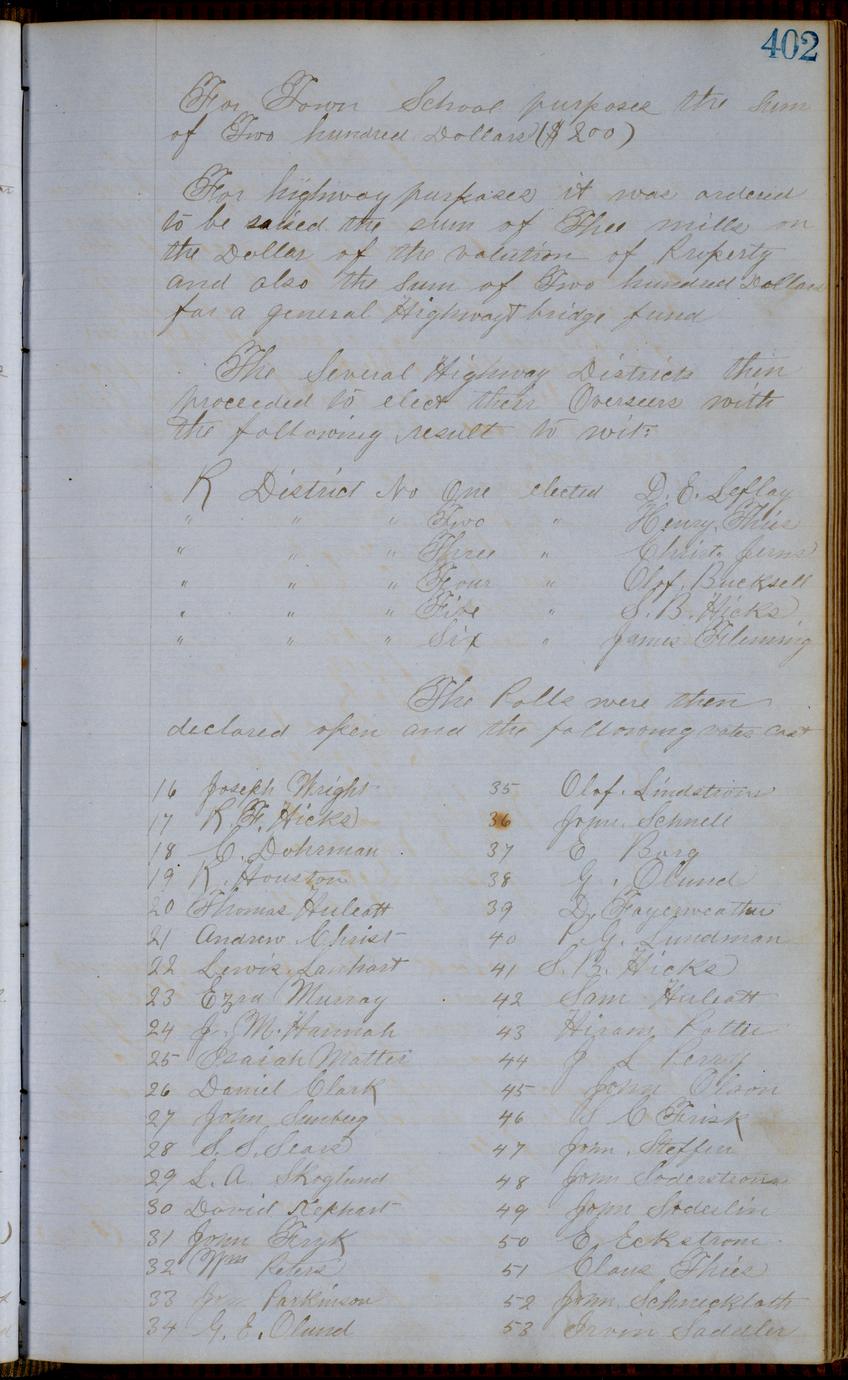 402
For Town School purposes the Sum
of Two hundred Dollars ($200)
For highway purposes it was ordered
to be raised the sum of Thee mills on
the Dollar of the valution of Property
and also the Sum of Two hundred Dollars
for a general Highway & bridge fund
The Several Highway Districts then
proceeded to elect their Overseers with
the following result to wit:
R District No One elected D. E.
" " " Two " Henry Thies
" " " Three " Christ.
" " " Four " Olof. Bucksell
" " " Five " S. B. Hicks
" " " Six " James Flemming
The Polls were then
declared open and the following votes cast
16 Joseph Wright
17 R. F. Hicks
18 C. Dohrman
19 R. Houston
20 Thomas Huleatt
21 Andrew Christ
22 Lewis Lanhart
23 Ezra Murray
24 J. M. Hannah
25 Isaiah Matter
26 Daniel Clark
27 John Senberg
28 S. S. Sears
29 L. A. Skoglund
30 David Rephart
31 John Fryk
32 Wm Peters
33 Parkinson
34 G. E. Olund
35 Olof. Lindstrom
36 John. Schnell
37 E Borg
38 G. Olund
39 D. Fayerweather
40 P. G. Lundman
41 S. B. Hicks
42 Sam Huleatt
43 Hiram Potter
44 J L Perry
45 John Olson
46 C Frisk
47 John. Steffen
48 John Soderstrom
49 John Soderlin
50 E. Eckstrom
51 Claus Thies
52 John. Schnickloth
53 Irvin Saddler